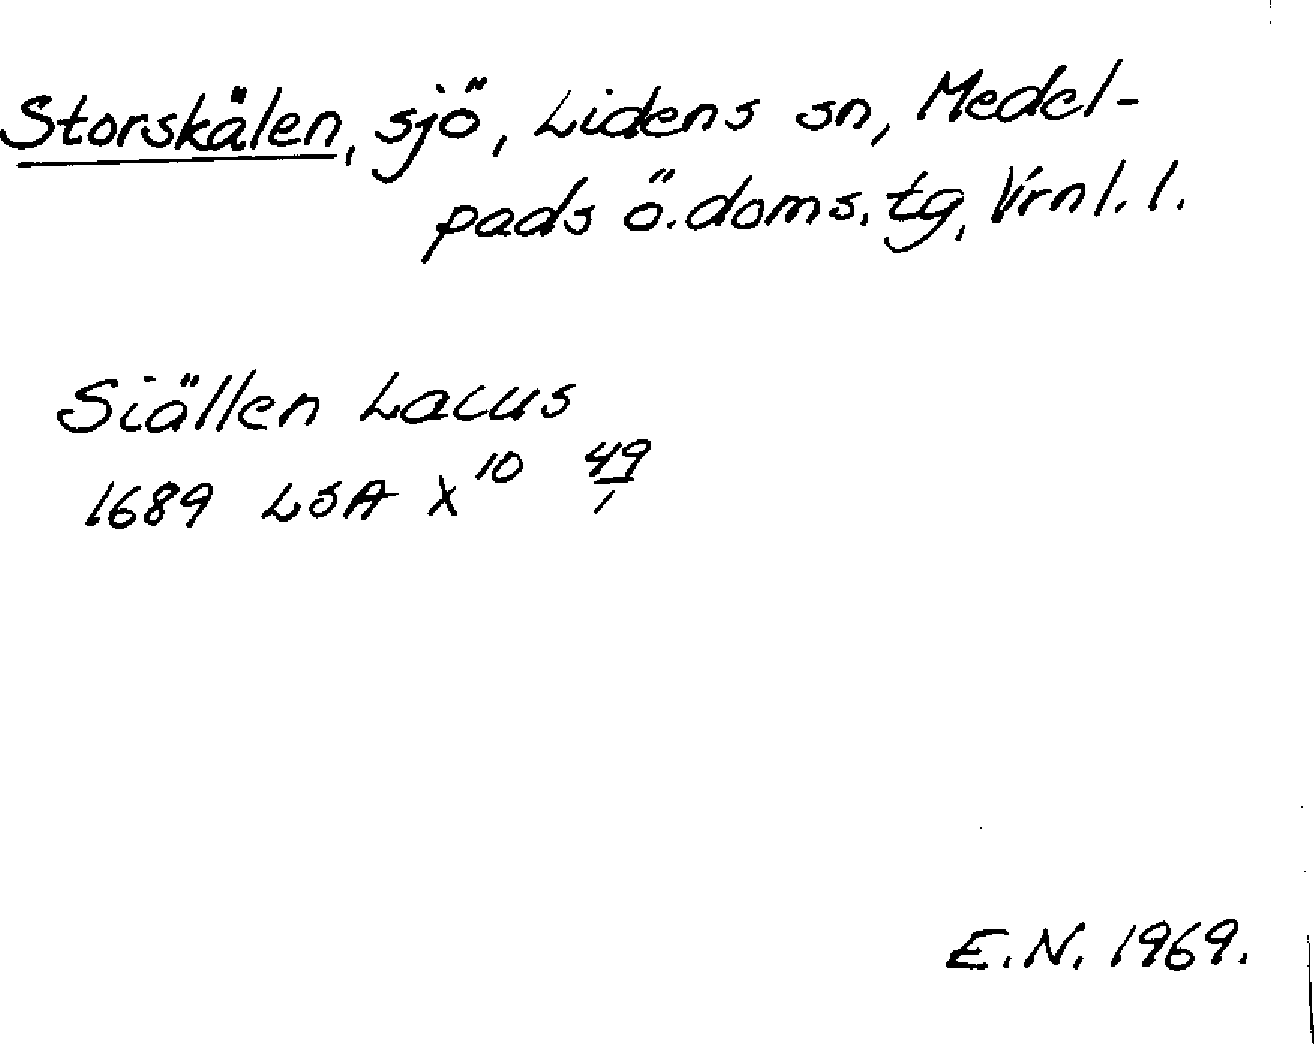 Storskälen, sjö, Lidens sn, Medel-
pads ö. doms. tg, Vrnl. l.
Siällen Lacus
1689 LSA X¹⁰ 49/1
E.N. 1969.